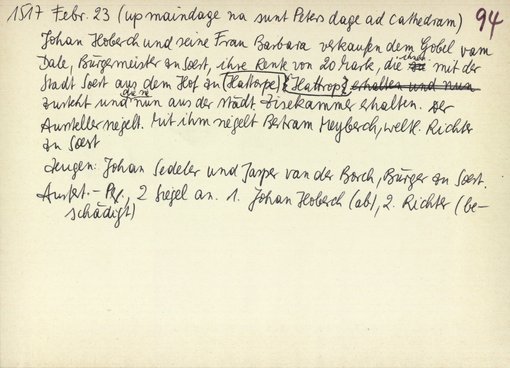 1517 Febr. 23 (up maindage na sunt Peters dage ad Cathedram) 94
Johan Hoberch und seine Frau Barbara verkaufen dem Gobel vam
Dale, Bürgermeister zu Soest, ihre Rente von 20 Mark, die ihnen mit der
Stadt Soest aus dem Hof zu (Hattorpe) {Hattrop} erhalten und nun
zusteht und die sie nun aus der städt. Zisekammer erhalten. Der
Aussteller siegelt. Mit ihm siegelt Bertram Meyberch, weltl. Richter
zu Soest
Zeugen: Johan Sedeler und Jasper van der Borch, Bürger zu Soest.
Ausf. - Pg., 2 Siegel an. 1. Johan Hoberch (ab), 2. Richter (be-
schädigt)